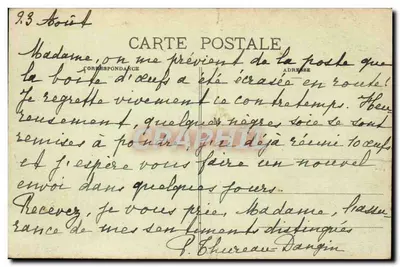 23 Août
CARTE POSTALE
Madame, on me prévient de la poste que
CORRESPONDANCE ADRESSE
la boîte d'œufs a été écrasée en route!
Je regrette vivement ce contretemps. Heu
reusement, quelques nègres soie se sont
remises à pondre. J'ai déjà réuni 10 œufs
et j'espère vous faire un nouvel
envoi dans quelques jours.
Recevez, je vous prie, Madame, l'assu
rance de mes sentiments distingués
P. Thureau-Dangin